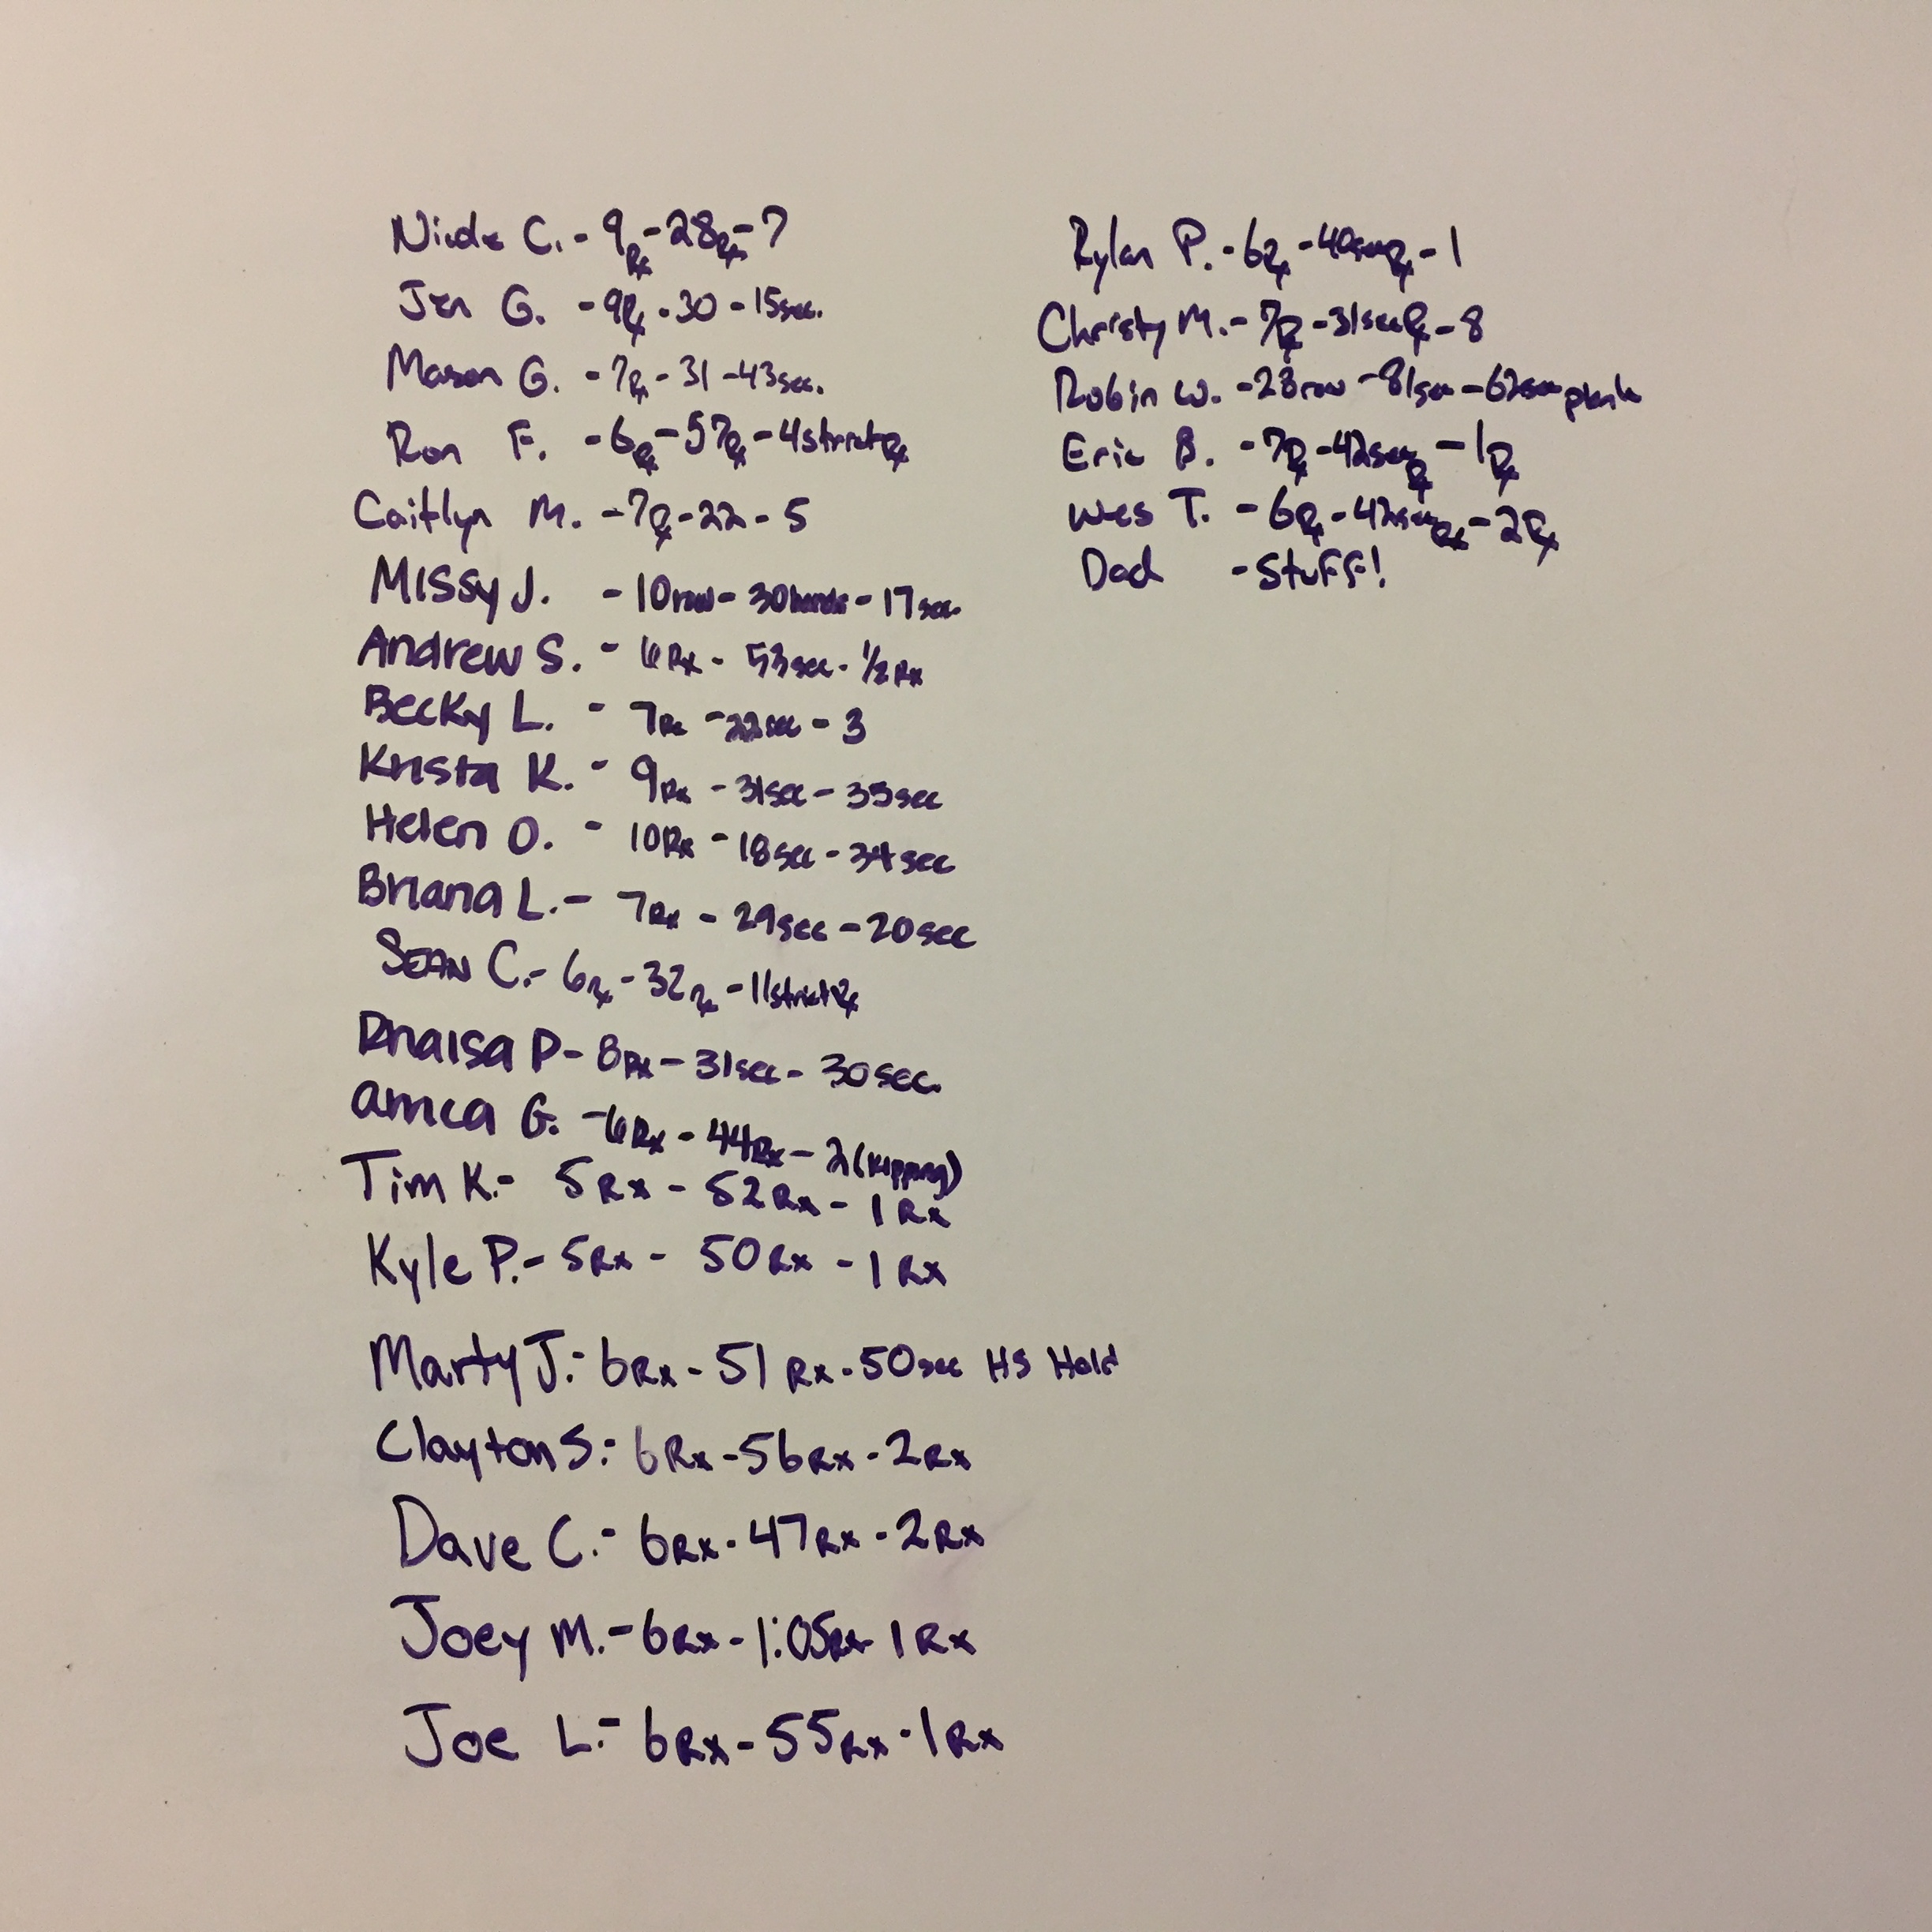 Nicole C. - 9Rx - 28Rx - 7
Jen G. - 9Rx - 30 - 15sec.
Mason G. - 7Rx - 31 - 43sec.
Ron F. - 6Rx - 57Rx - 4strictRx
Caitlyn M. - 7Rx - 22 - 5
Missy J. - 10row - 30 - 17sec.
Andrew S. - 6Rx - 53sec - 1/2Rx
Becky L. - 7Rx - 22sec - 3
Krista K. - 9Rx - 31sec - 35sec
Helen O. - 10Rx - 18sec - 34sec
Briana L. - 7Rx - 29sec - 20sec
SEAN C. - 6Rx - 32Rx - 11strictRx
Rhaisa P - 8Rx - 31sec - 30sec.
G. - 6Rx - 44Rx - 2(kipping)
Tim K. - 5Rx - 52Rx - 1Rx
Kyle P. - 5Rx - 50Rx - 1Rx
Marty J. - 6Rx - 51Rx - 50sec HS Hold
Clayton S. - 6Rx - 56Rx - 2Rx
Dave C. - 6Rx - 47Rx - 2Rx
Joey M. - 6Rx - 1:05Rx - 1Rx
Joe L. - 6Rx - 55Rx - 1Rx
Rylan P. - 6Rx - 40secRx - 1
Christy M. - 7Rx - 31secRx - 8
Robin W. - 23row - 81sec - 62sec plank
Eric B. - 7Rx - 42secRx - 1Rx
Wes T. - 6Rx - 42secRx - 2Rx
Dad - Stuff!